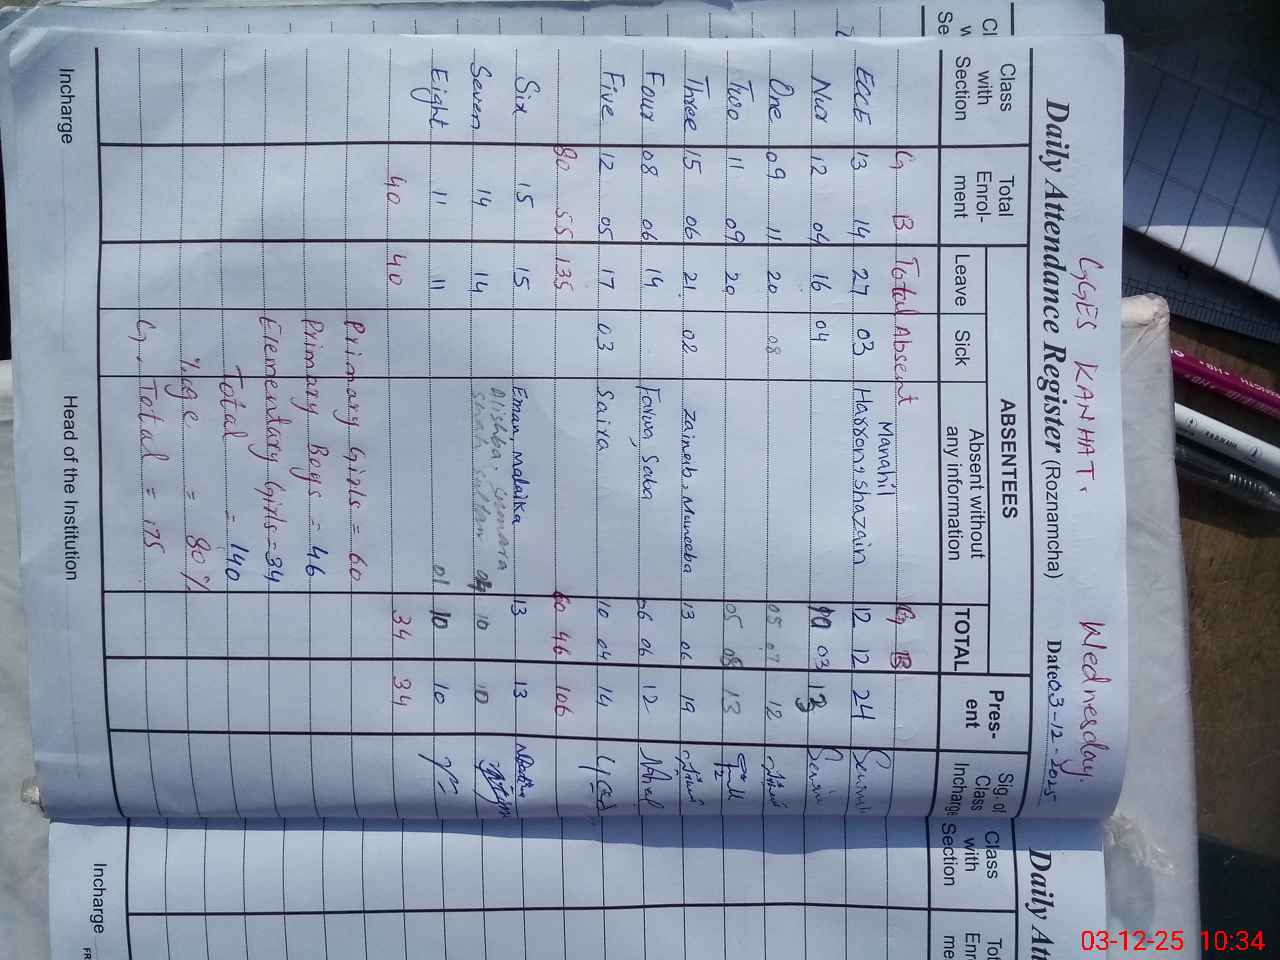 GGES KANHAT. Wednesday.
Daily Attendance Register (Roznamcha) Date 03-12-2025
Class with Section Total Enrol-ment Leave Sick ABSENTEES Absent without any information TOTAL Pres-ent Sig. of Class Incharge
G B Total Absent G B
Manahil
ECCE 13 14 27 03 Harroon, Shazain 12 12 24
Nur 12 04 16 04 03
One 09 11 20 08 05 07 12
Two 11 09 20 05 08 13
Three 15 06 21 02 Zaineb, Muneeba 13 06 19
Four 08 06 14 Farwa, Saba 06 06 12
Five 12 05 17 03 Saira 10 04 14
80 55 135 60 46 106
Six 15 15 Eman, Malaika 13 13
Seven 14 14 10 10
Eight 11 11 01 10 10
40 40 34 34
Primary Girls = 60
Primary Boys = 46
Elementary Girls = 34
Total = 140
%age = 80%
G. Total = 175
Incharge Head of the Institution
Daily At
Class with Section
Incharge
03-12-25 10:34